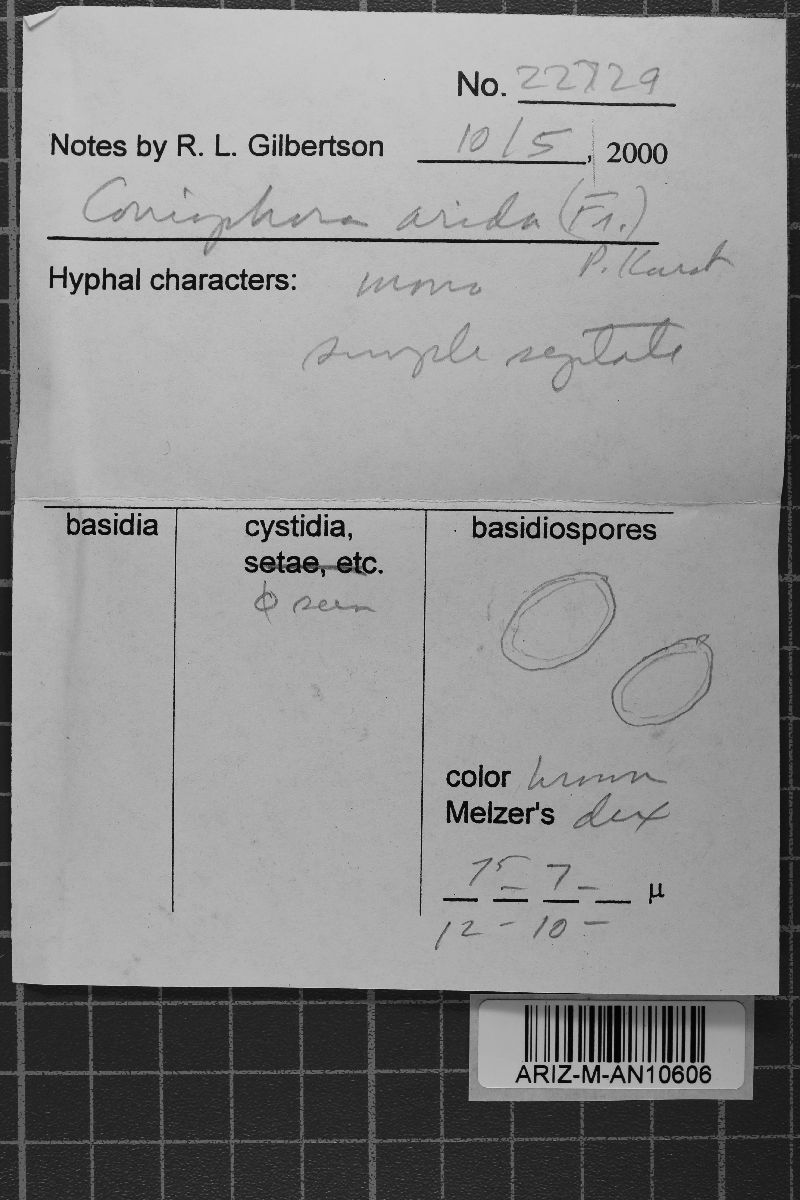 No. 22729
Notes by R. L. Gilbertson 10/5, 2000
Coniophora arida (Fr.)
P. Karst
Hyphal characters: mono
simple septate
basidia
cystidia,
setae, etc.
ϕ seen
basidiospores
color brown
Melzer's dex
7 – μ
12 – 10 –
ARIZ-M-AN10606